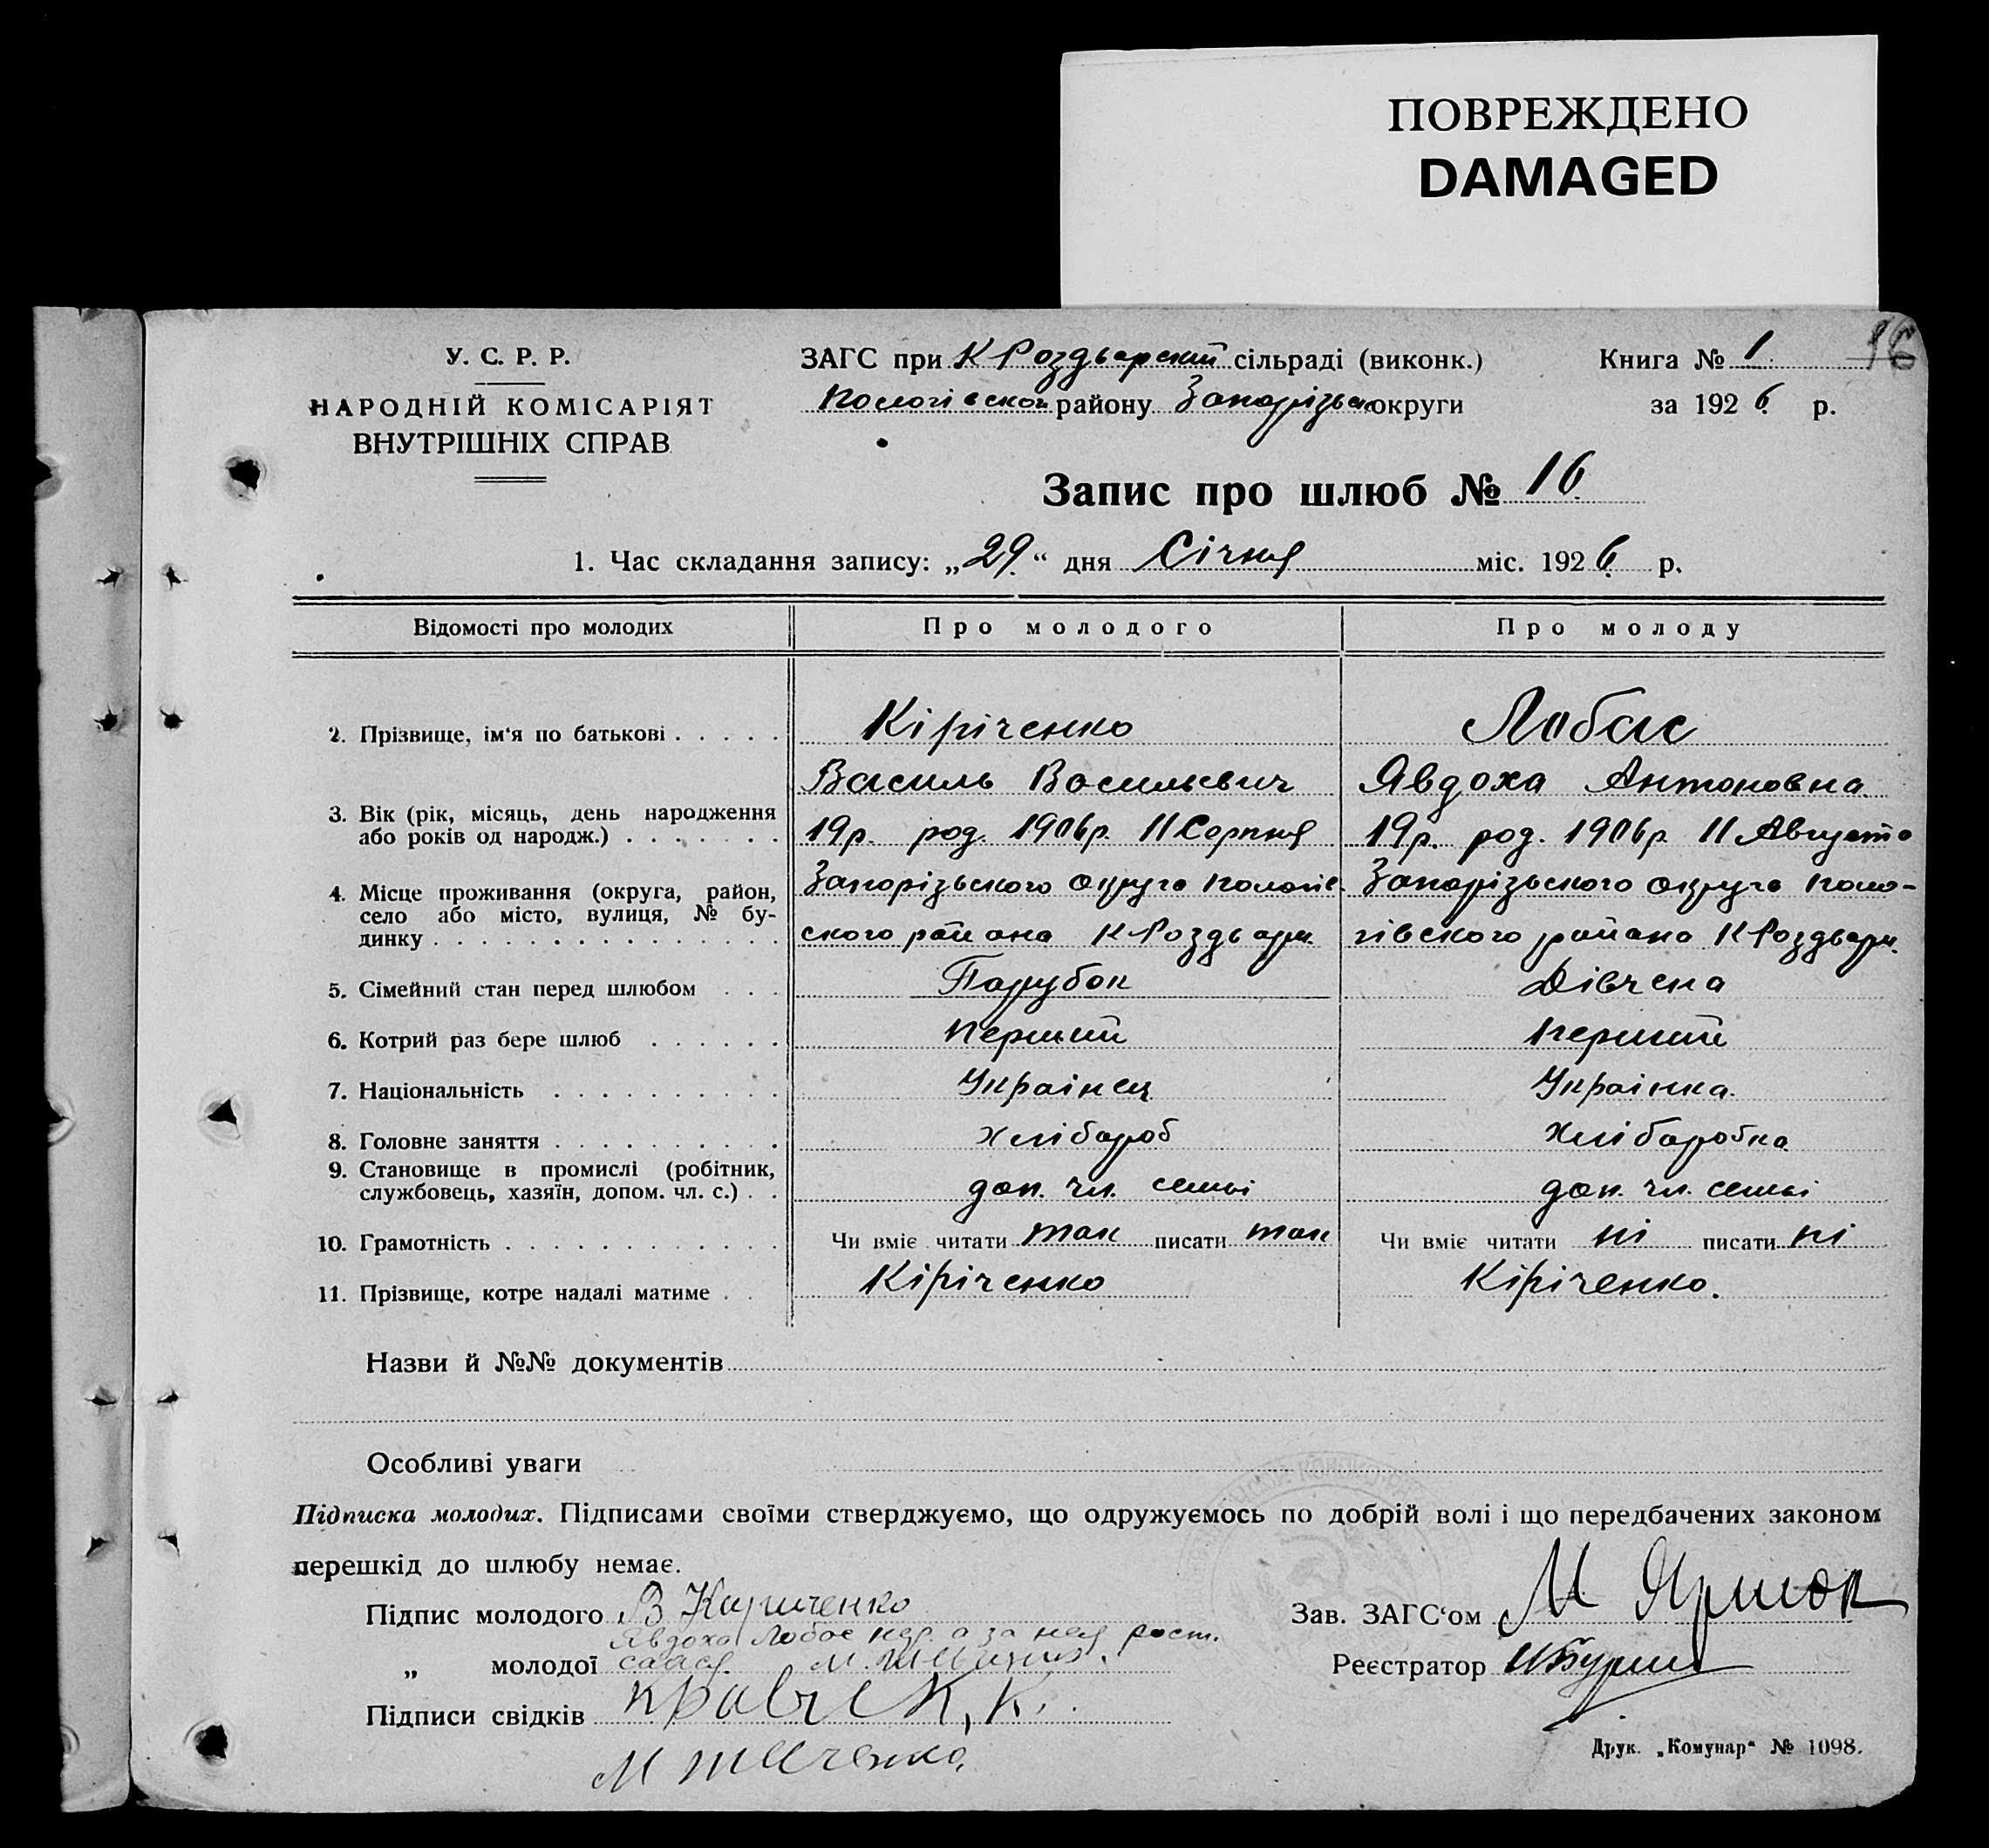 ПОВРЕЖДЕНО
DAMAGED
16
У. С. Р. Р.
НАРОДНІЙ КОМІСАРІЯТ
ВНУТРІШНІХ СПРАВ
ЗАГС при К Роздорский сільраді (виконк.)
Пологівской району Запорізьк округи
Книга № 1
за 1926 р.
Запис про шлюб № 16
1. Час складання запису: „29“ дня Січня міс. 1926 р.
Відомості про молодих Про молодого Про молоду
2. Прізвище, ім'я по батькові . . . . . Кіріченко Лобас
Василь Васильевич Явдоха Антоновна
3. Вік (рік, місяць, день народження
або років од народж.) . . . . . . . 19р. род. 1906р. 11 Серпня 19р. род. 1906р. 11 Августа
4. Місце проживання (округа, район, Запорізьского округа Пологів- Запорізьского округа Поло-
село або місто, вулиця, № бу-
динку . . . . . . . . . . . . . . . ского района К Роздори гівского района К Роздори
5. Сімейний стан перед шлюбом . . . Парубок Дівчена
6. Котрий раз бере шлюб . . . . . . Перший Перший
7. Національність . . . . . . . . . . Українец Українка.
8. Головне заняття . . . . . . . . . . Хлібороб Хліборобка
9. Становище в промислі (робітник,
службовець, хазяїн, допом. чл. с.) . . доп. чл. семьі доп. чл. семьі
10. Грамотність . . . . . . . . . . . . Чи вміє читати так писати так Чи вміє читати ні писати ні
11. Прізвище, котре надалі матиме . . Кіріченко Кіріченко.
Назви й №№ документів
Особливі уваги
Підписка молодих. Підписами своїми стверджуємо, що одружуємось по добрій волі і що передбачених законом
перешкід до шлюбу немає.
Підпис молодого В Кириченко
Явдоха Лобас нег. а за нея рост.
„ молодої М.
Підписи свідків К.
М
Зав. ЗАГС'ом М
Реєстратор
Друк. „Комунар“ № 1098.